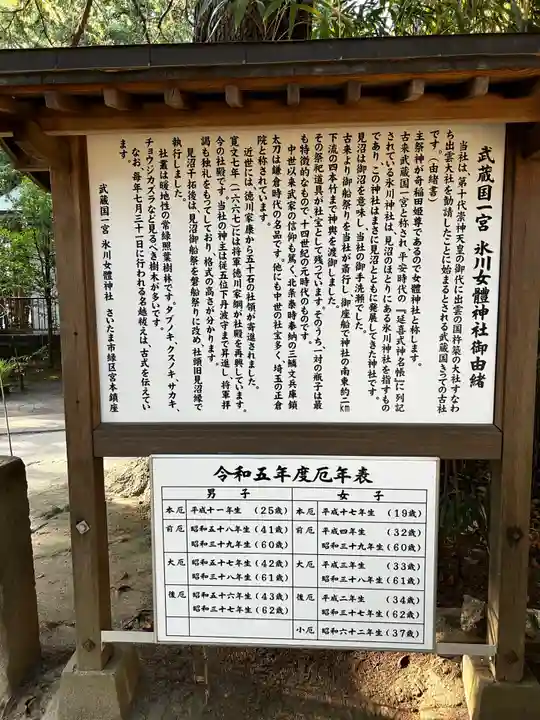 武蔵国一宮 氷川女體神社御由緒
当社は、第十代崇神天皇の御代に出雲の国杵築の大社すなわ
ち出雲大社を勧請したことに始まるとされる武蔵国きっての古社
です。(由緒書)
主祭神が奇稲田姫尊であるので女體神社と称します。
古来武蔵国一宮と称され、平安時代の『延喜式神名帳』に列記
されている氷川神社は、見沼のほとりにある氷川神社を指すもの
であり、この神社はまさに見沼とともに発展してきた神社です。
見沼は御沼を意味し、当社の御手洗瀬でした。
古来より御船祭りを当社が斎行し、御座船で神社の南東約二km
下流の四本竹まで神輿を渡御しました。
その祭祀道具が社宝として残っています。そのうち、一対の瓶子は最
も特徴的なもので、十四世紀の元時代のものです。
中世以来武家の信仰も篤く、北条泰時奉納の三鱗文兵庫鎖
太刀は鎌倉時代の名品です。他にも中世の社宝多く、埼玉の正倉
院と称されています。
近世には、徳川家康から五十石の社領が寄進されました。
寛文七年(一六六七)には将軍徳川家綱が社殿を再興しています。
今の社殿です。当社の神主は従五位下丹波守まで昇進し、将軍拝
謁も独礼をもってしており、格式の高さが分かります。
見沼干拓後は、見沼御船祭を磐船祭りに改め、社頭旧見沼縁で
執行しました。
社叢は暖地性の常緑照葉樹林です。タブノキ、クスノキ、サカキ、
チョウジカズラなど見るべき樹木が多いです。
なお、毎年七月三十一日に行われる名越祓えは、古式を伝えてい
ます。
武蔵国一宮 氷川女體神社 さいたま市緑区宮本鎮座
令和五年度厄年表
男子
本厄 平成十一年生 (25歳)
前厄 昭和五十八年生 (41歳)
昭和三十九年生 (60歳)
大厄 昭和五十七年生 (42歳)
昭和三十八年生 (61歳)
後厄 昭和五十六年生 (43歳)
昭和三十七年生 (62歳)
女子
本厄 平成十七年生 (19歳)
前厄 平成四年生 (32歳)
昭和三十九年生 (60歳)
大厄 平成三年生 (33歳)
昭和三十八年生 (61歳)
後厄 平成二年生 (34歳)
昭和三十七年生 (62歳)
小厄 昭和六十二年生 (37歳)